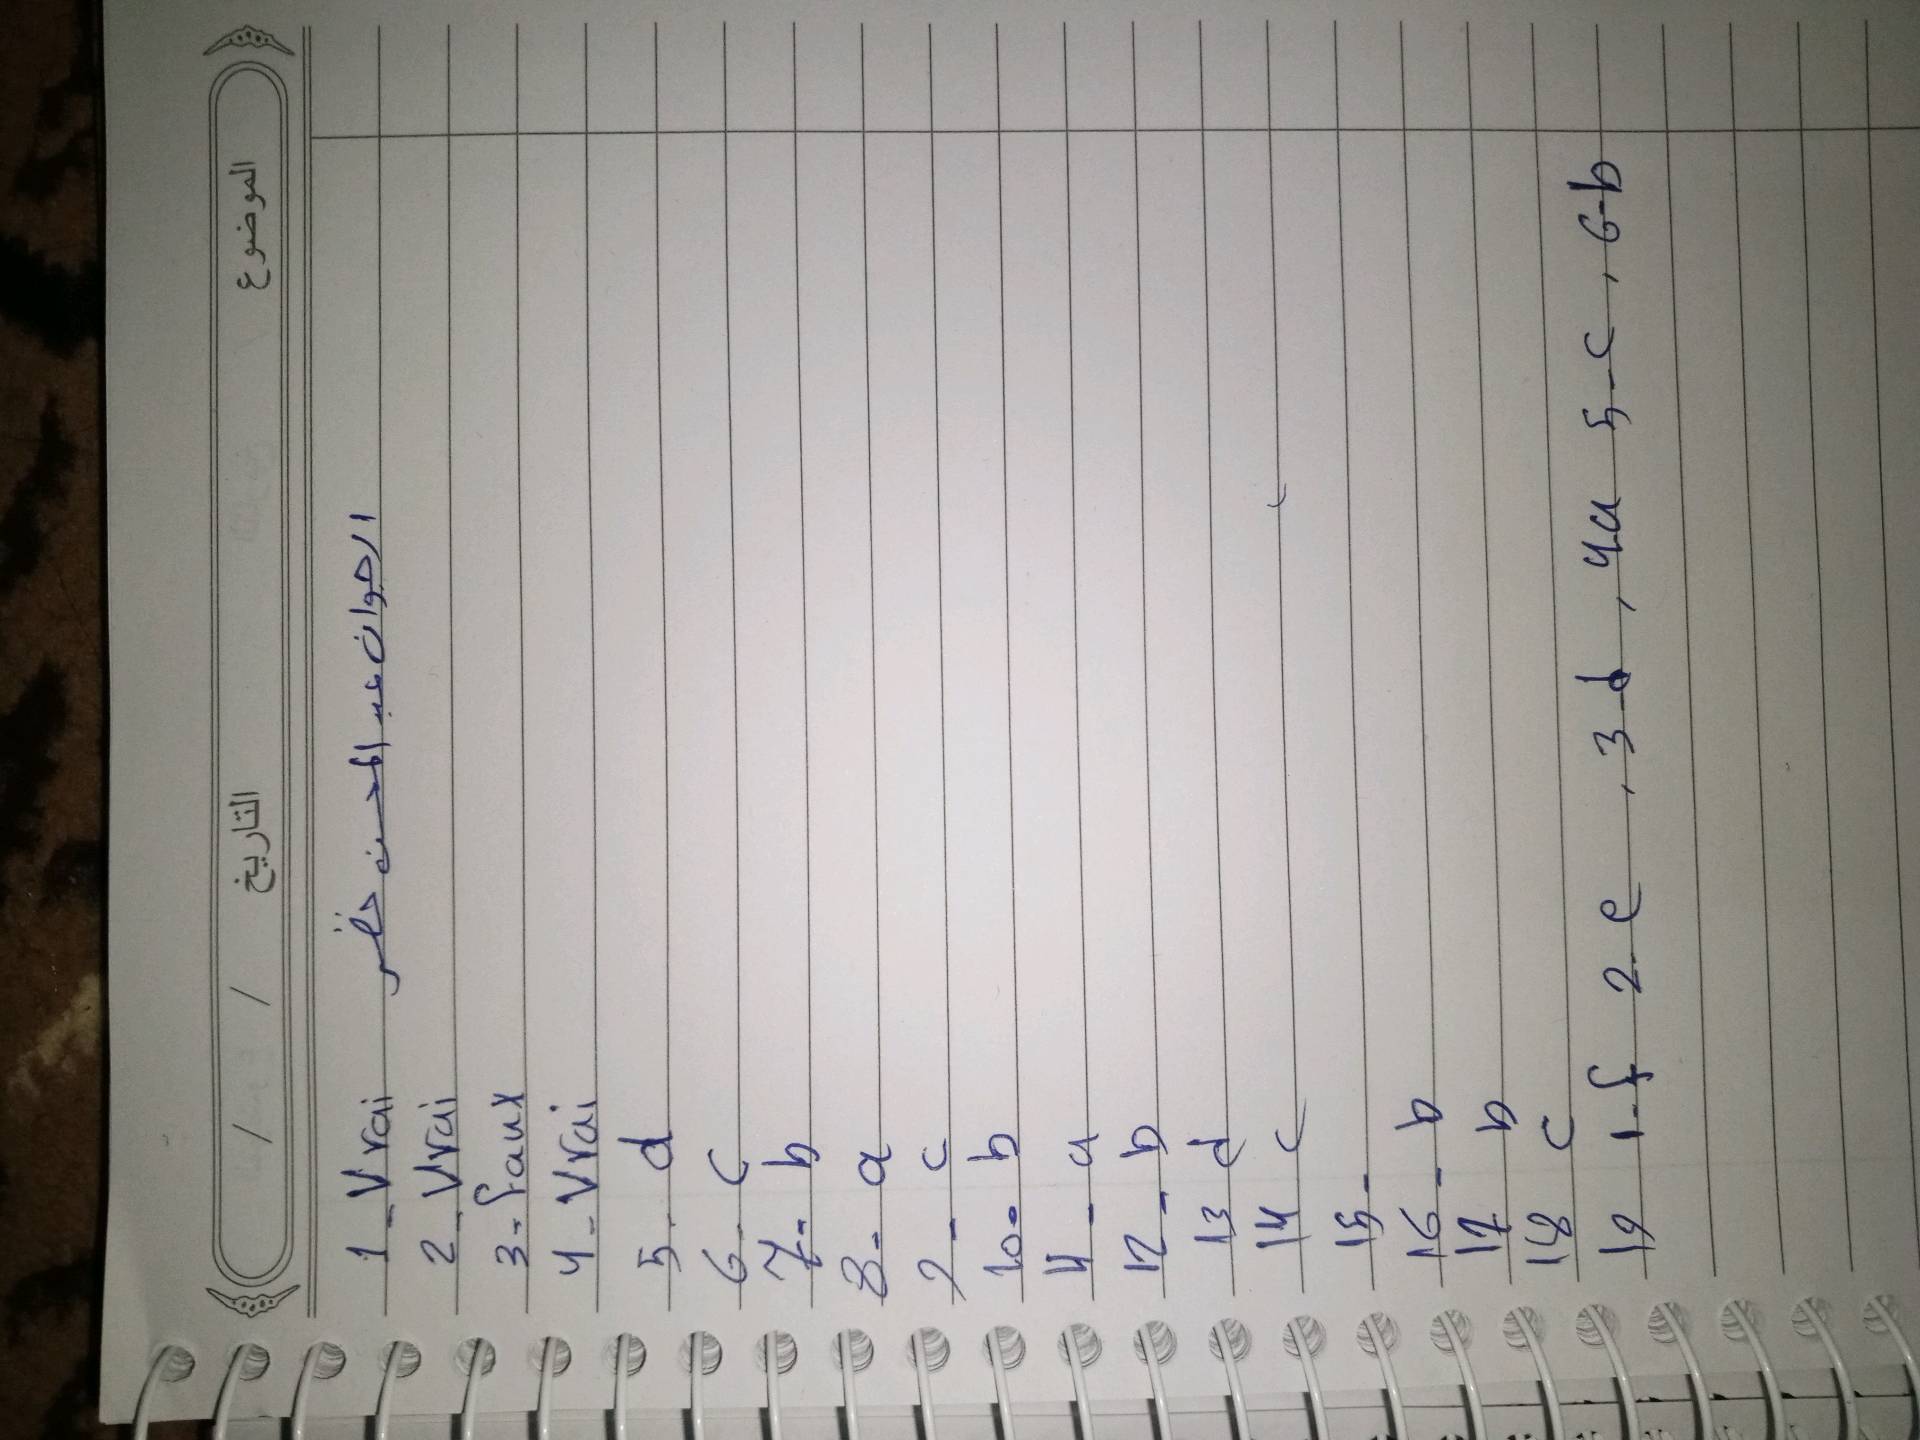 الموضوع التاريخ / /
1 - Vrai
2 - Vrai
3 - faux
4 - Vrai
5 - d
6 - c
7 - b
8 - a
9 - c
10 - b
11 - a
12 - b
13 d
14 c
15 -
16 - b
17 b
18 c
19 1-f 2-e , 3-d , 4a 5-c , 6-b